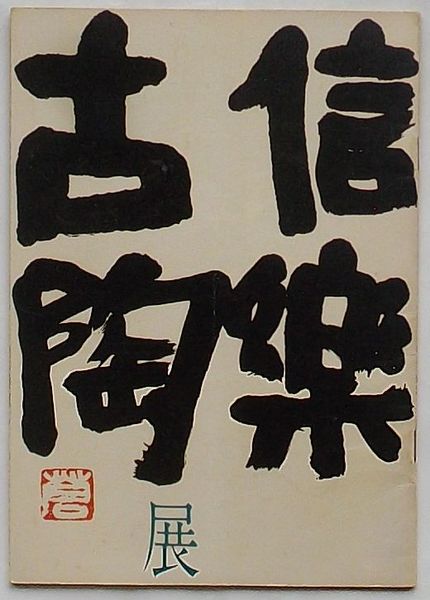 信樂
古陶
展